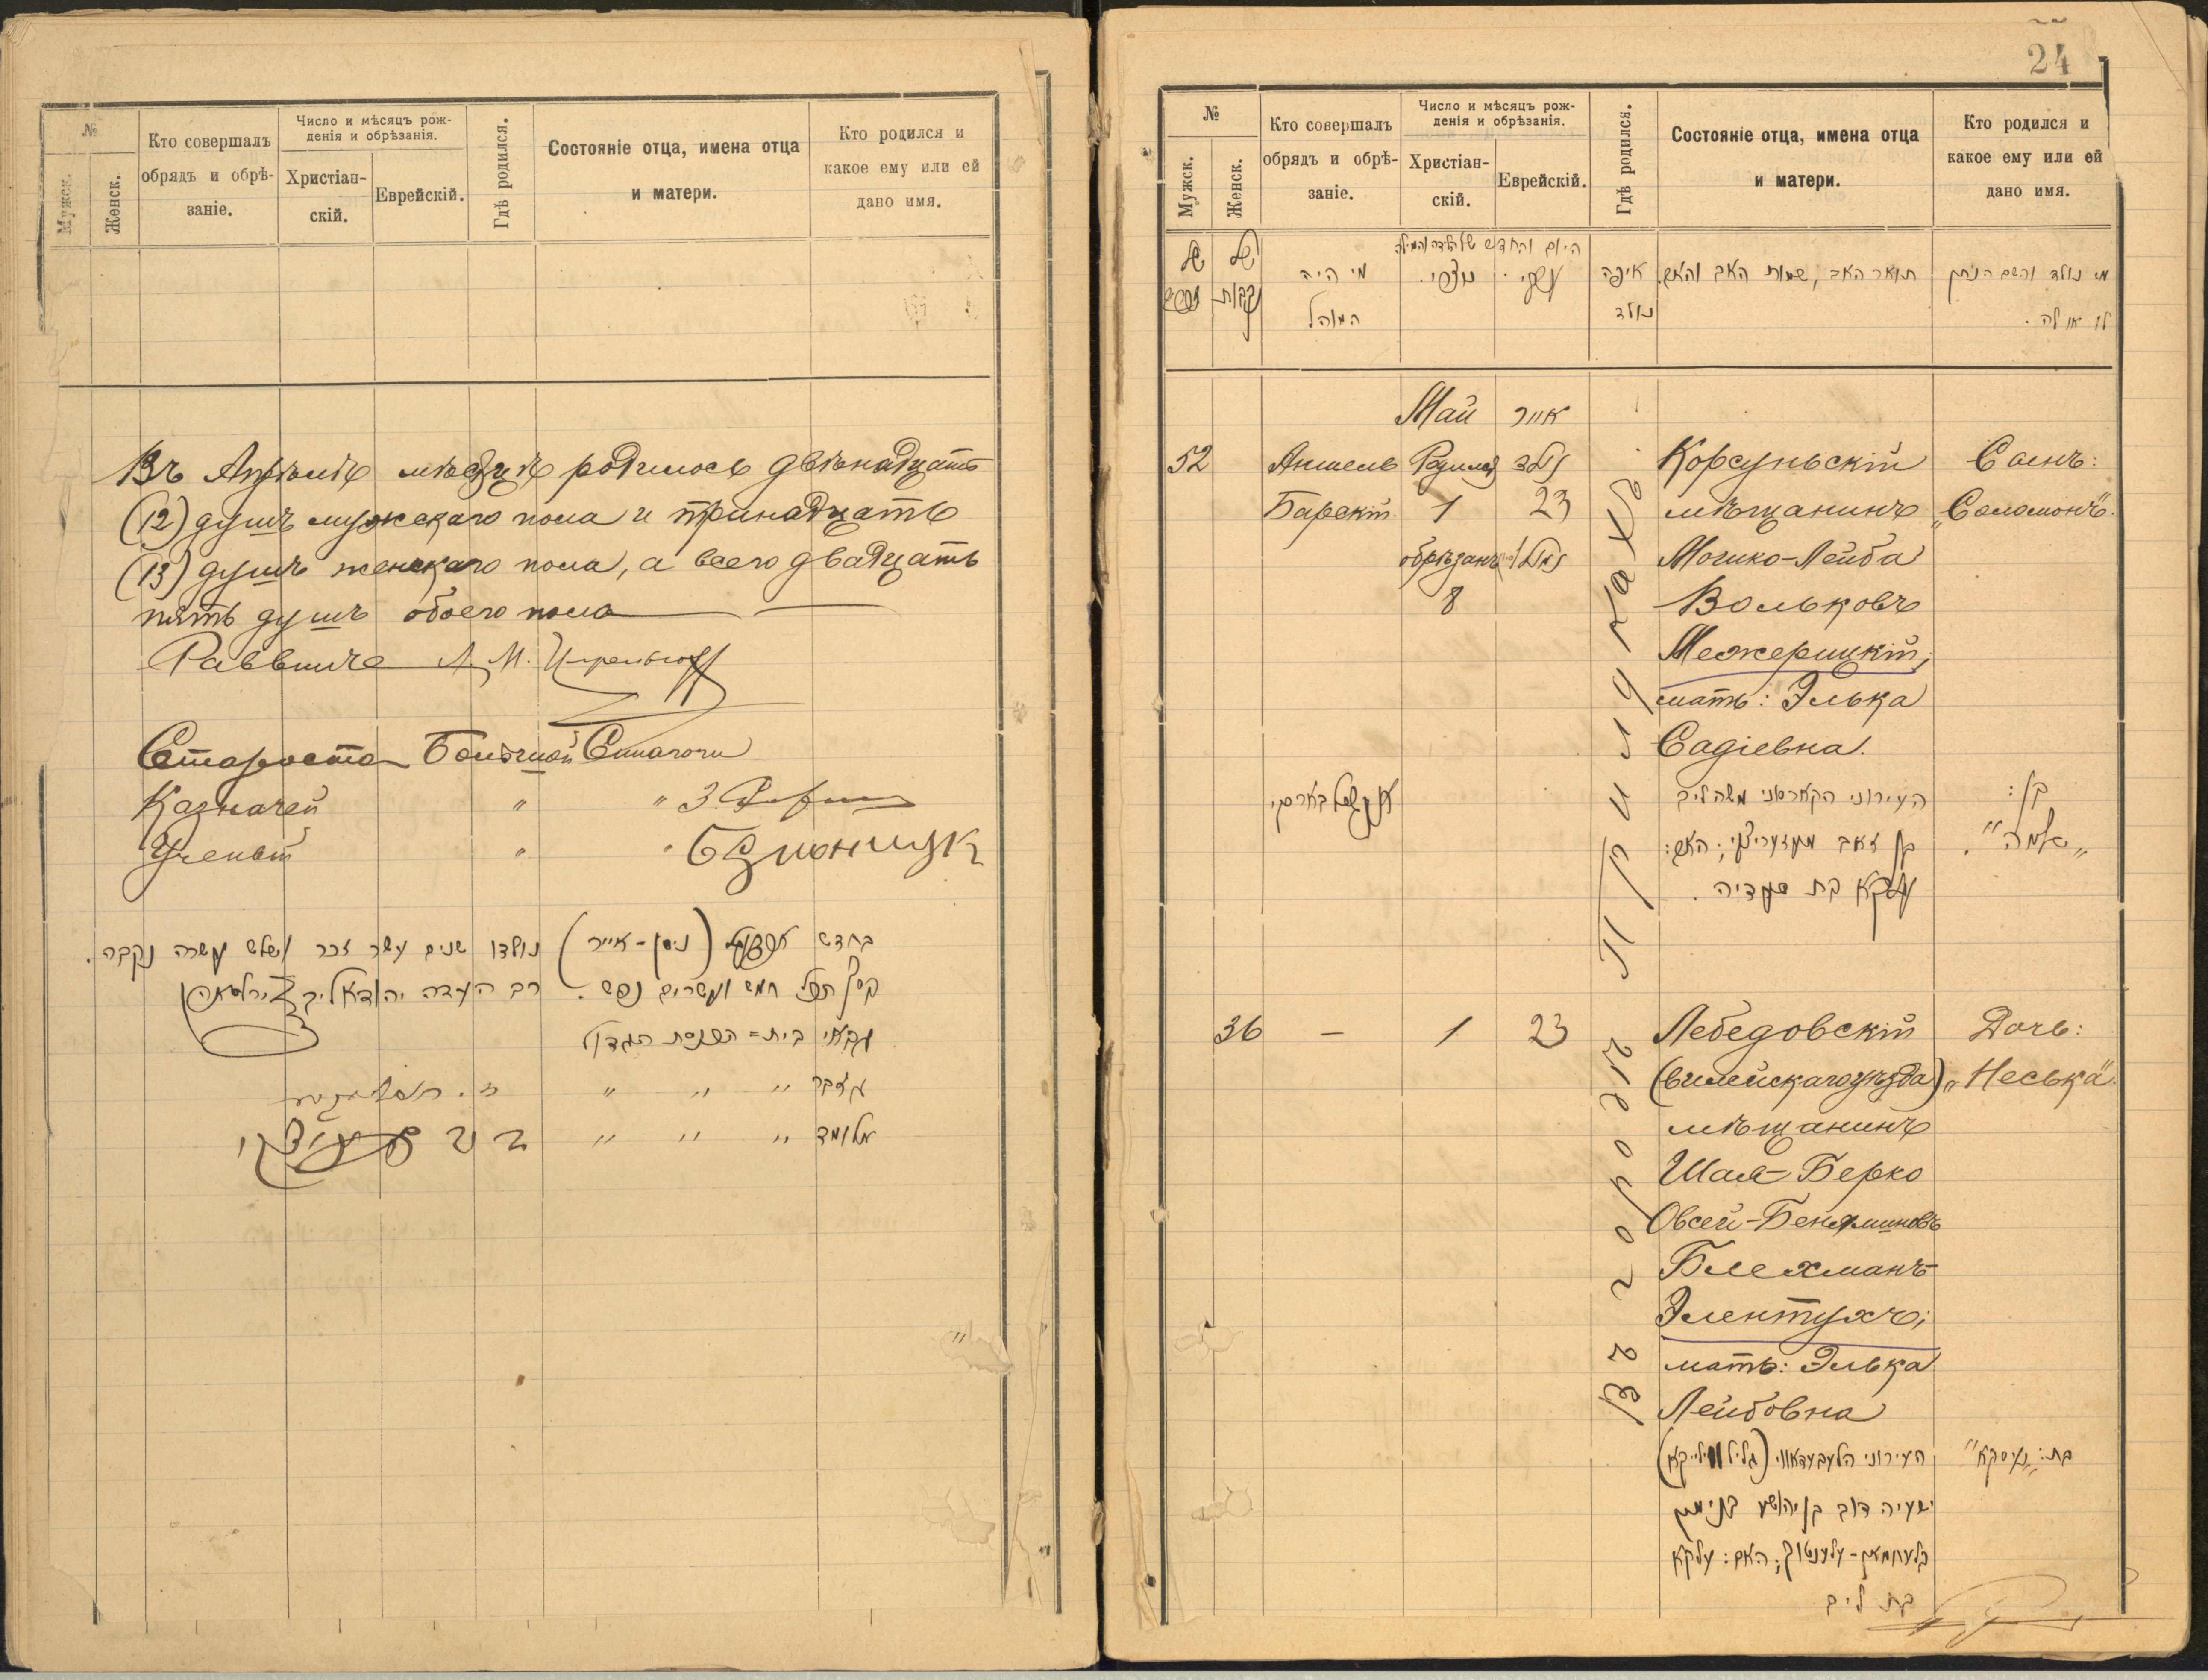 №
Мужск.
Женск.
Кто совершалъ
обрядъ и обрѣ-
заніе.
Число и мѣсяцъ рож-
денія и обрѣзанія.
Христіан-
скій.
Еврейскій.
Гдѣ родился.
Состояніе отца, имена отца
и матери.
Кто родился и
какое ему или ей
дано имя.
Въ Апрѣлѣ мѣсяцѣ родилось двѣнадцать
(12) душъ мужескаго пола и тринадцать
(13) душъ женскаго пола, а всего двадцать
пять душъ обоего пола
Раввинъ Л. М.
Староста Большой Синагоги
Казначей " " З.
Ученый " "
בחדש (ניסן - אייר) נולדו שנים עשר זכר ושלש עשרה נקבה.
חמש ועשרים נפש. רב העדה יהודא ליב
גבאי בית = הכנסת הגדול
גזבר " " "
מלומד " " "
24
№
Мужск.
Женск.
Кто совершалъ
обрядъ и обрѣ-
заніе.
Число и мѣсяцъ рож-
денія и обрѣзанія.
Христіан-
скій.
Еврейскій.
Гдѣ родился.
Состояніе отца, имена отца
и матери.
Кто родился и
какое ему или ей
дано имя.
היום והחדש של הלידה והמילה
של
של
נקבות
מי היה
המוהל
נוצרי.
עברי.
איפה
נולד
תואר האב, שמות האב והאם.
מי נולד והשם הניתן
לו או לה.
Май אייר
52 Аншель Родился נולד Корсуньскій Сынъ:
Барскій 1 23 мѣщанинъ „Соломонъ".
обрѣзанъ נמול Мошко-Лейба
8 Вольковъ
Межерицкій;
мать: Элька
Садіевна.
אנשל בארסקי
העירוני הקארסוני משה ליב
בן זאב מעזעריצקי; האם:
עלקא בת סעדיה.
בן:
„שלמה".
36 — 1 23 Лебедовскій Дочь:
(Вилейскаго уѣзда) „Неська".
мѣщанинъ
Шая-Берко
Овсей-Беняминовъ
Блехманъ-
Элентухъ;
мать: Элька
Лейбовна
העירוני הלעבעדאווי (גליל ווילייקא) בת: „נעסקא"
ישעיה דוב בן יהושע בנימין
בלעכמאן - עלענטוך; האם: עלקא
בת ליב
Въ городѣ Прилукахъ.